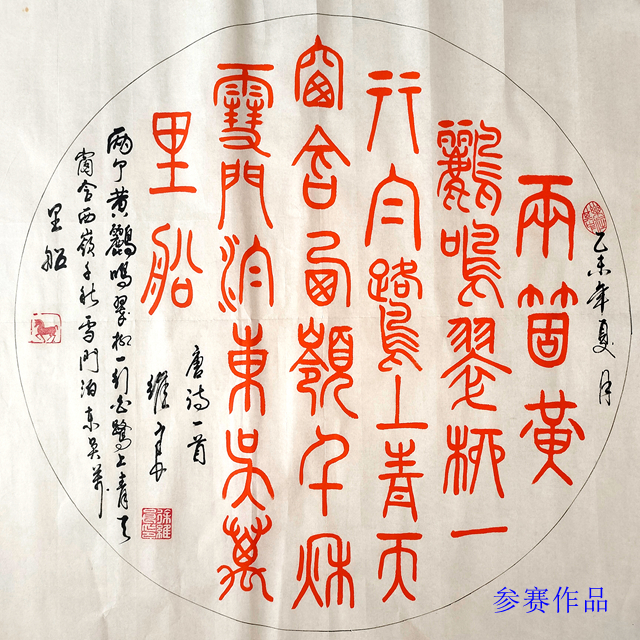 乙未年夏月
兩箇黃
鸝鳴翠柳一
行白鷺上青天
窗含西嶺千秋
雪門泊東吳萬
里船
唐诗一首
維
两个黄鸝鳴翠柳一行白鷺上青天
窗含西嶺千秋雪門泊東吳萬
里船
参赛作品